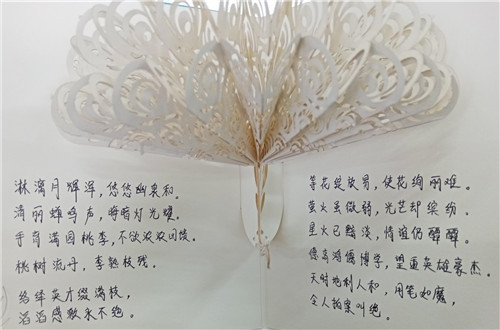 淋漓月辉泽，悠悠幽泉和。
清丽蝉鸣声，暗暗灯光暖。
手育满园桃李，不欲浓浓回馈。
桃树流丹，李艳枝残。
络绎英才缀满枝，
滔滔感激永不绝。
等花绽放易，使花绚丽难。
萤火虽微弱，光芒却缤纷。
星火已黯淡，情谊仍醇醇。
德高鸿儒博学，望重英雄豪杰。
天时地利人和，用笔如魔，
令人拍案叫绝。